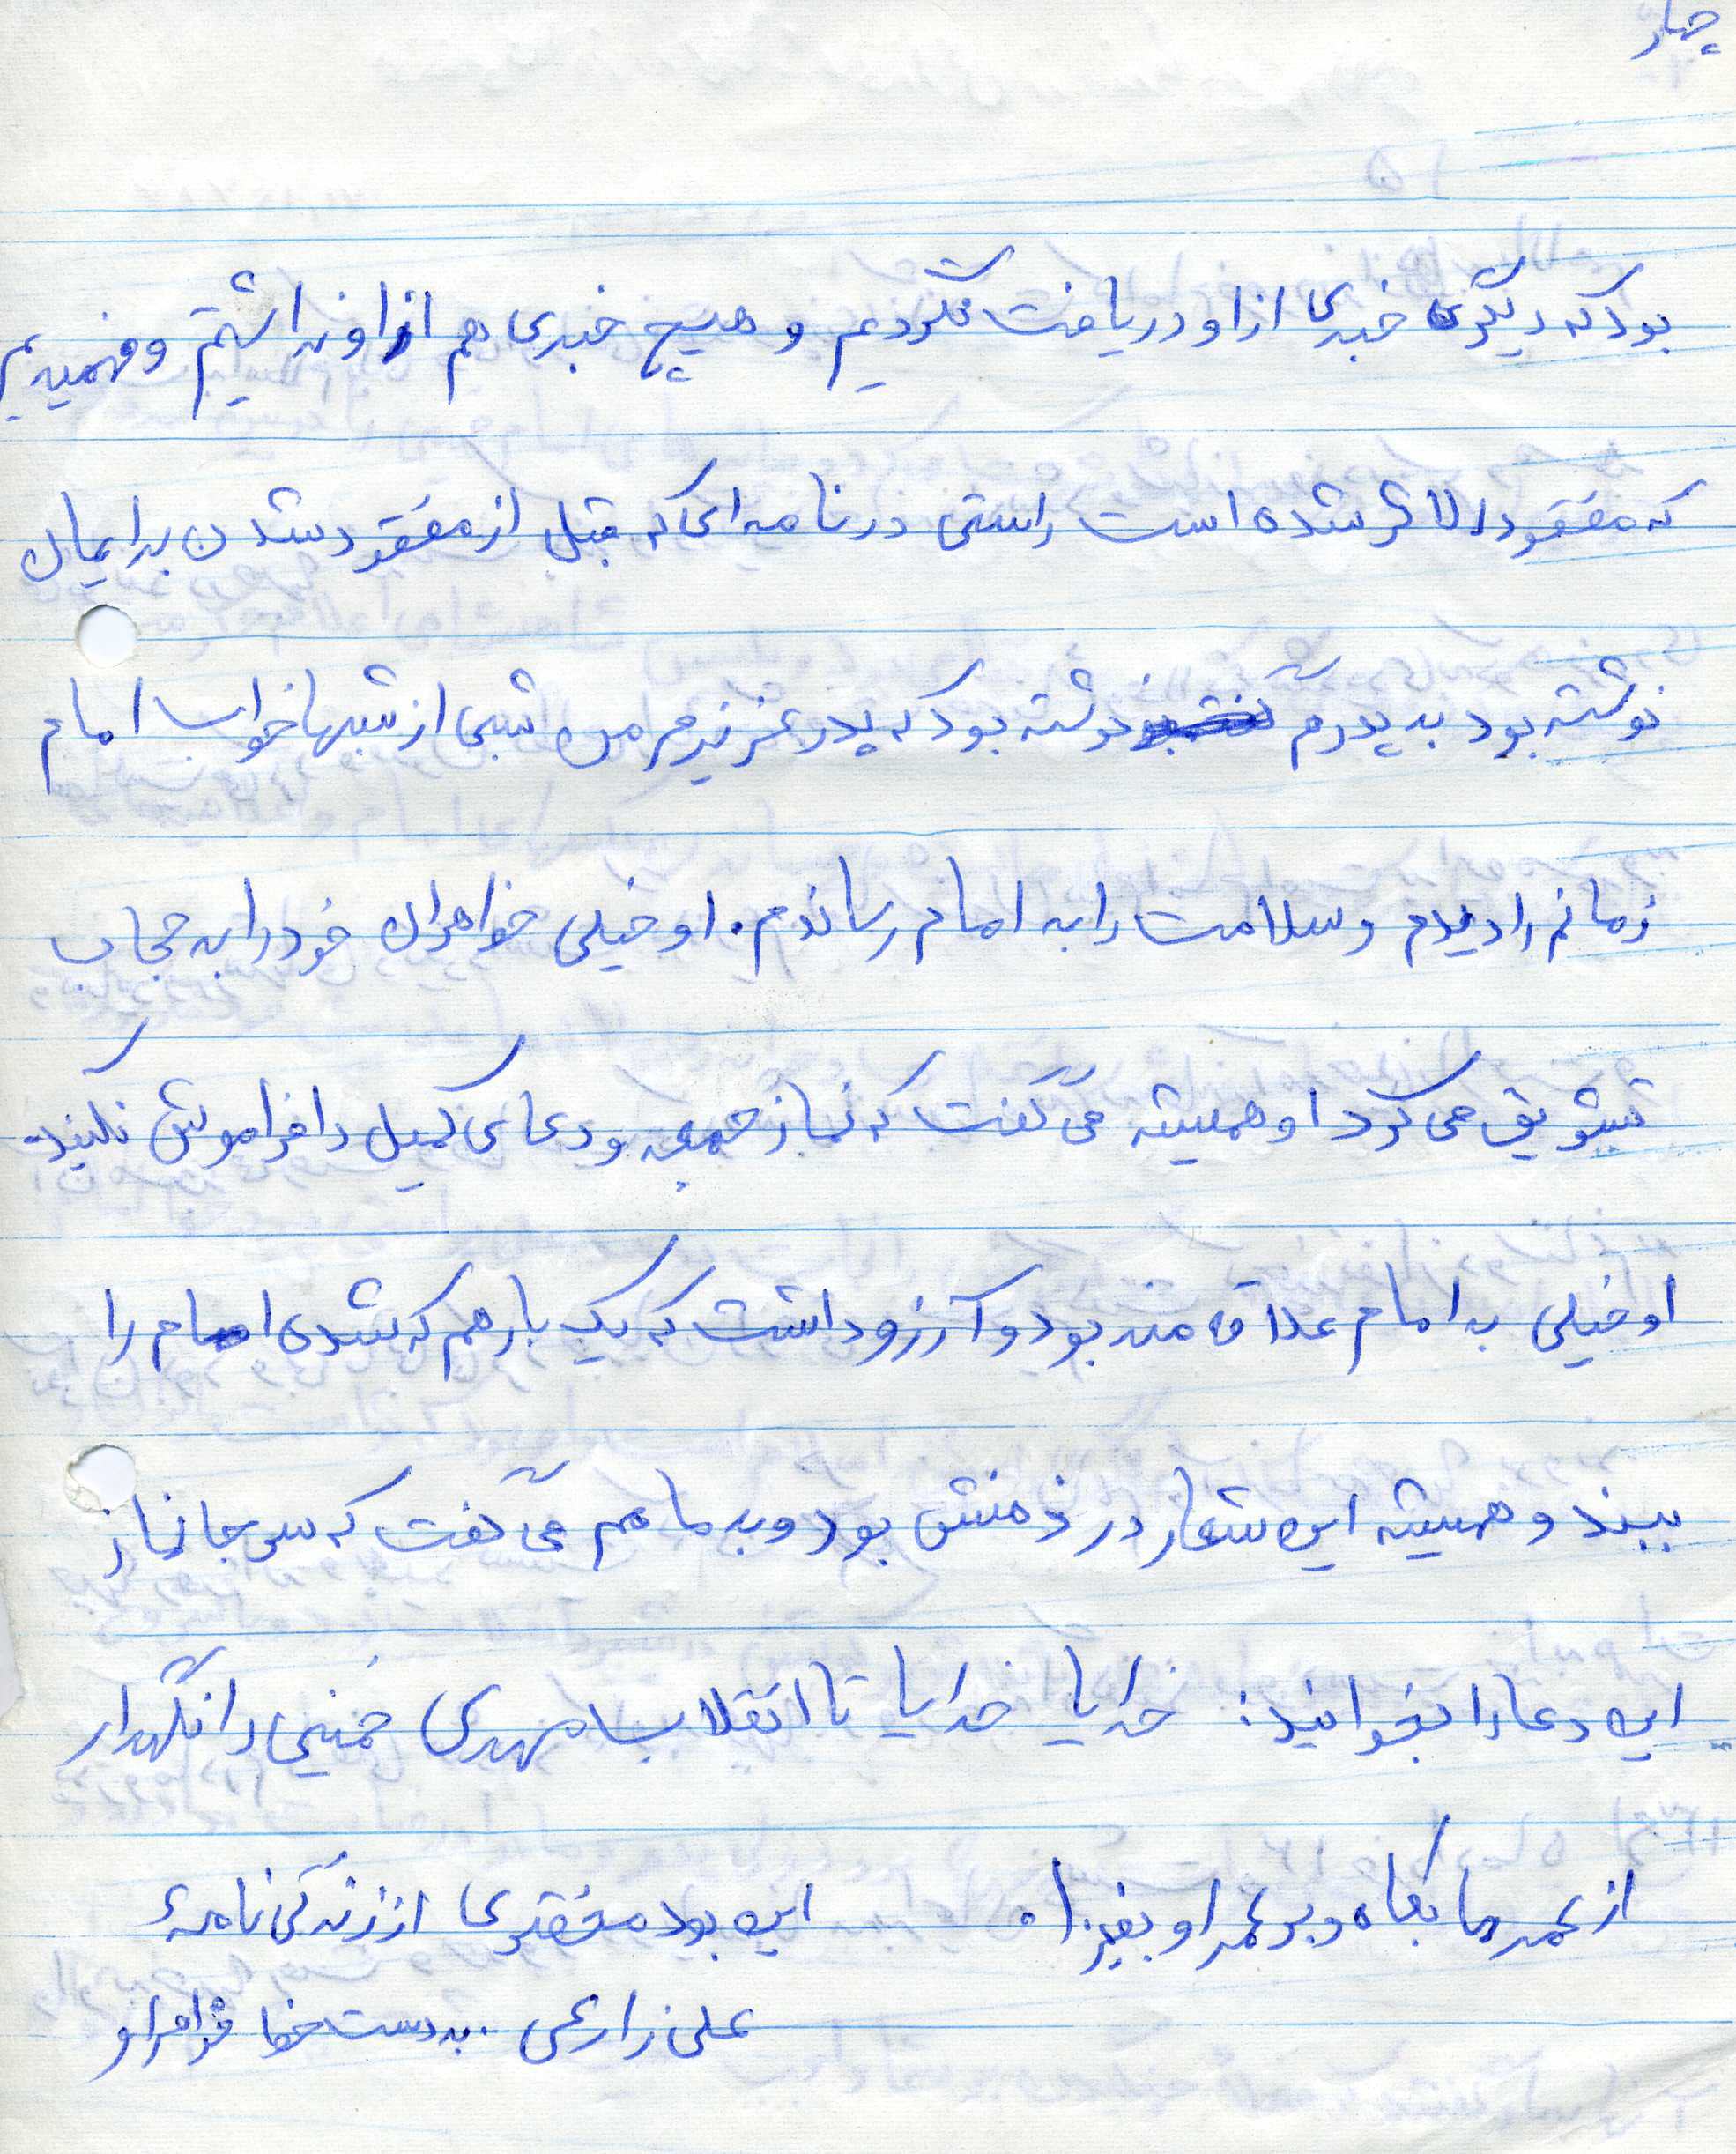 چهار
بود که دیگر خبری از او دریافت نکردیم و هیچ خبری هم از او نداشتیم و فهمیدیم
که مفقودالاثر شده است راستی در نامه ای که قبل از مفقود شدن برایمان
نوشته بود به پدرم نوشته بود که پدر عزیزم من شبی از شبها خواب امام
زمانم را دیدم و سلامت را به امام رساندم. او خیلی خواهران خود را به حجاب
تشویق می کرد او همیشه می گفت که نماز جمعه و دعای کمیل را فراموش نکنید.
او خیلی به امام علاقه مند بود و آرزو داشت که یک بار هم که شدی امام را
ببیند و همیشه این شعار در ذهنش بود و به ما هم می گفت که سر جانماز
این دعا را بخوانید: خدایا خدایا تا انقلاب مهدی خمینی را نگهدار
از عمر ما بکاه و بر عمر او بفیزا. این بود مختصری از زندگی نامهٔ
علی زارعی. به دست خط خواهر او